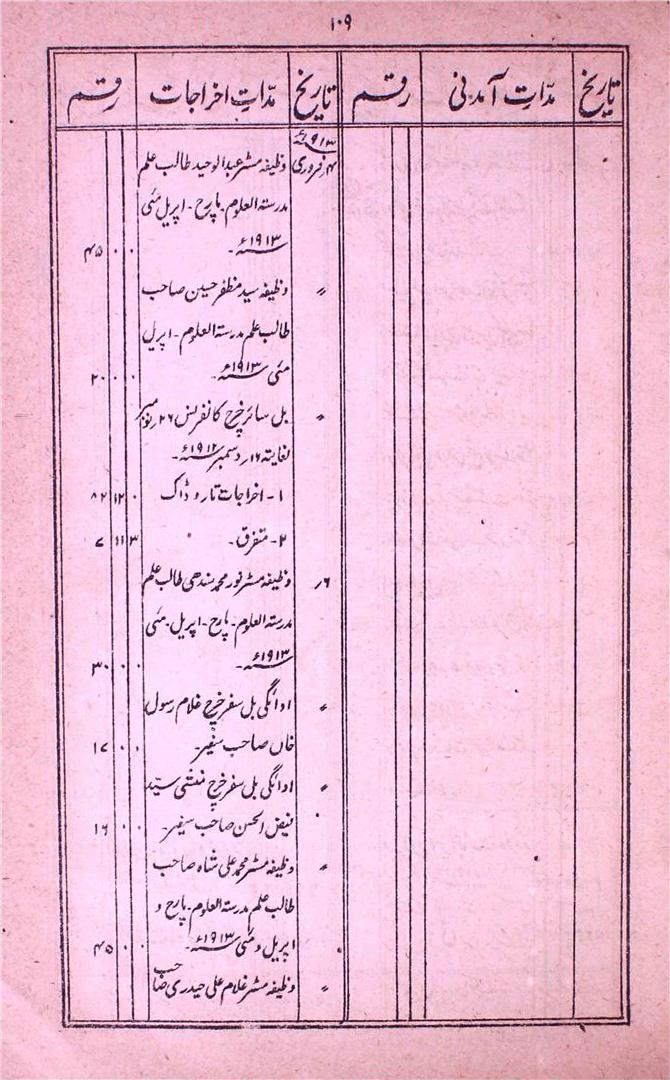 ۱۰۹
تاریخ مدّاتِ آمدنی رقم تاریخ مدّاتِ اخراجات رقم
۱۹۱۳ء
۴؍فروری وظیفہ مسٹر عبدالوحید طالب علم
مدرستہ العلوم۔ مارچ۔ اپریل مئی
۱۹۱۳ء۔ ۰ ۰ ۴۵
〃 وظیفہ سید مظفر حسین صاحب
طالب علم مدرستہ العلوم۔ اپریل
مئی ۱۹۱۳ء۔ ۰ ۰ ۲۰
〃 بل سائر خرچ کانفرنس ۲۶؍نومبر
لغایتہ ۱۶؍دسمبر ۱۹۱۲ء۔
۱۔ اخراجات تار و ڈاک ۰ ۱۲ ۸۲
۲۔ متفرق۔ ۳ ۱۱ ۷
۶؍ وظیفہ مسٹر نور محمد سندھی طالب علم
مدرستہ العلوم۔ مارچ۔ اپریل۔ مئی
۱۹۱۳ء۔ ۰ ۰ ۳۰
〃 ادائگی بل سفر خرچ غلام رسول
خاں صاحب سفیر۔ ۰ ۰ ۱۷
〃 ادائگی بل سفر خرچ منشی سیّد
فیض الحسن صاحب سفیر۔ ۰ ۰ ۱۶
〃 وظیفہ مسٹر محمد علی شاہ صاحب
طالب علم مدرستہ العلوم۔ مارچ و
اپریل و مئی ۱۹۱۳ء۔ ۰ ۰ ۴۵
〃 وظیفہ مسٹر غلام علی حیدری صاحب